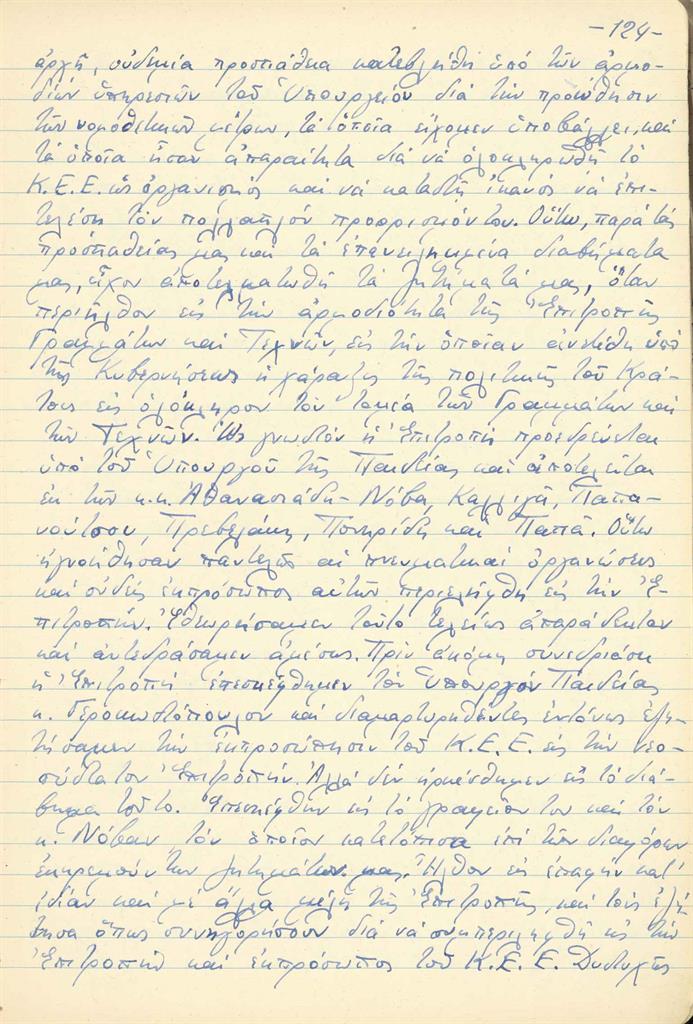 -124-
ἀρχῆς, οὐδεμία προσπάθεια κατεβλήθη ὑπὸ τῶν ἁρμο-
δίων ὑπηρεσιῶν τοῦ Ὑπουργείου διὰ τὴν προώθησιν
τῶν νομοθετικῶν μέτρων, τὰ ὁποῖα εἴχομεν ὑποβάλλει, καὶ
τὰ ὁποῖα ἦσαν ἀπαραίτητα διὰ νὰ ὁλοκληρωθῇ τὸ
Κ.Ε.Ε. ὡς ὀργανισμὸς καὶ νὰ καταστῇ ἱκανὸς νὰ ἐπι-
τελέσῃ τὸν πολλαπλόν προορισμόν του. Οὕτω, παρὰ τὰς
προσπαθείας μας καὶ τὰ ἐπανειλημμένα διαβήματα
μας, εἶχον ἀποτελματωθῆ τὰ ζητήματά μας, ὅταν
περιῆλθον εἰς τὴν ἁρμοδιότητα τῆς Ἐπιτροπῆς
Γραμμάτων καὶ Τεχνῶν, εἰς τὴν ὁποίαν ἀνετέθη ὑπὸ
τῆς Κυβερνήσεως ἡ χάραξις τῆς πολιτικῆς τοῦ Κρά-
τους εἰς ὁλόκληρον τὸν τομέα τῶν Γραμμάτων καὶ
τῶν Τεχνῶν. Ὡς γνωστὸν ἡ Ἐπιτροπὴ προεδρεύεται
ὑπὸ τοῦ Ὑπουργοῦ τῆς Παιδείας καὶ ἀποτελεῖται
ἐκ τῶν κ.κ. Ἀθανασιάδη-Νόβα, Καλλιγᾶ, Παπα-
νούτσου, Πρεβελάκη, Πονηρίδη καὶ Παπᾶ. Οὕτω
ἠγνοήθησαν παντελῶς αἱ πνευματικαὶ ὀργανώσεις
καὶ οὐδεὶς ἐκπρόσωπος αὐτῶν περιελήφθη εἰς τὴν Ἐ-
πιτροπήν. Ἐθεωρήσαμεν τοῦτο τελείως ἀπαράδεκτον
καὶ ἀντεδράσαμεν ἀμέσως. Πρὶν ἀκόμη συνεδριάσῃ
ἡ Ἐπιτροπὴ ἐπεσκέφθημεν τὸν Ὑπουργὸν Παιδείας
κ. Γεροκωστόπουλον καὶ διαμαρτυρηθέντες ἐντόνως ἐζη-
τήσαμεν τὴν ἐκπροσώπησιν τοῦ Κ.Ε.Ε. εἰς τὴν νεο-
σύστατον Ἐπιτροπήν. Ἀλλὰ δὲν ἠρκέσθημεν εἰς τὸ διά-
βημα τοῦτο. Ἐπεσκέφθην εἰς τὸ γραφεῖον του καὶ τὸν
κ. Νόβαν τὸν ὁποῖον κατετόπισα ἐπὶ τῶν διαφόρων
ἐκκρεμούντων ζητημάτων μας. Ἦλθον εἰς ἐπαφὴν κατ'
ἰδίαν καὶ μὲ ἄλλα μέλη τῆς Ἐπιτροπῆς, καὶ τοὺς ἐζή-
τησα ὅπως συνηγορήσουν διὰ νὰ συμπεριληφθῆ εἰς τὴν
Ἐπιτροπὴν καὶ ἐκπρόσωπος τοῦ Κ.Ε.Ε. Δυστυχῶς